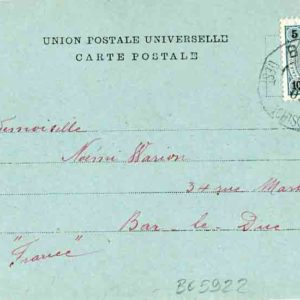 UNION POSTALE UNIVERSELLE
CARTE POSTALE
5
10
emoiselle
Noëmi Warion
34 rue
Bar-le-Duc
"France"
B65922